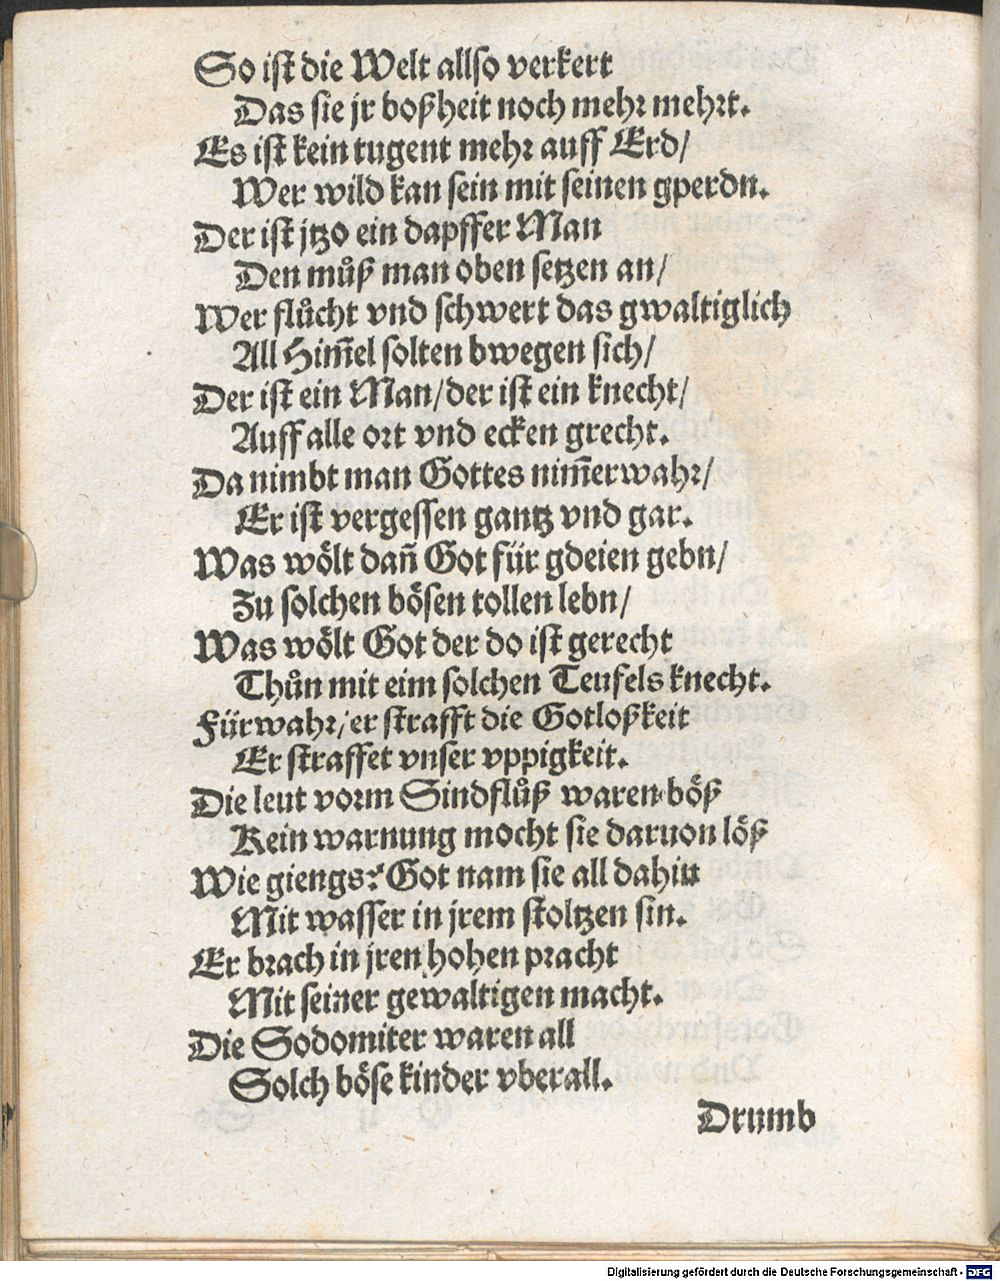 So ist die Welt allso verkert
Das sie jr boßheit noch mehr mehrt.
Es ist kein tugent mehr auff Erd/
Wer wild kan sein mit seinen gperdn.
Der ist jtzo ein dapffer Man
Den můß man oben setzen an/
Wer flůcht vnd schwert das gwaltiglich
All Him̃el solten bwegen sich/
Der ist ein Man/der ist ein knecht/
Auff alle ort vnd ecken grecht.
Da nimbt man Gottes nim̃erwahr/
Er ist vergessen gantz vnd gar.
Was wölt dañ Got für gdeien gebn/
Zu solchen bösen tollen lebn/
Was wölt Got der do ist gerecht
Thůn mit eim solchen Teufels knecht.
Fürwahr/er strafft die Gotloßkeit
Er straffet vnser vppigkeit.
Die leut vorm Sindflůß waren böß
Kein warnung mocht sie daruon löß
Wie giengs? Got nam sie all dahin
Mit wasser in jrem stoltzen sin.
Er brach in jren hohen pracht
Mit seiner gewaltigen macht.
Die Sodomiter waren all
Solch böse kinder vberall.
Drumb
Digitalisierung gefördert durch die Deutsche Forschungsgemeinschaft - DFG